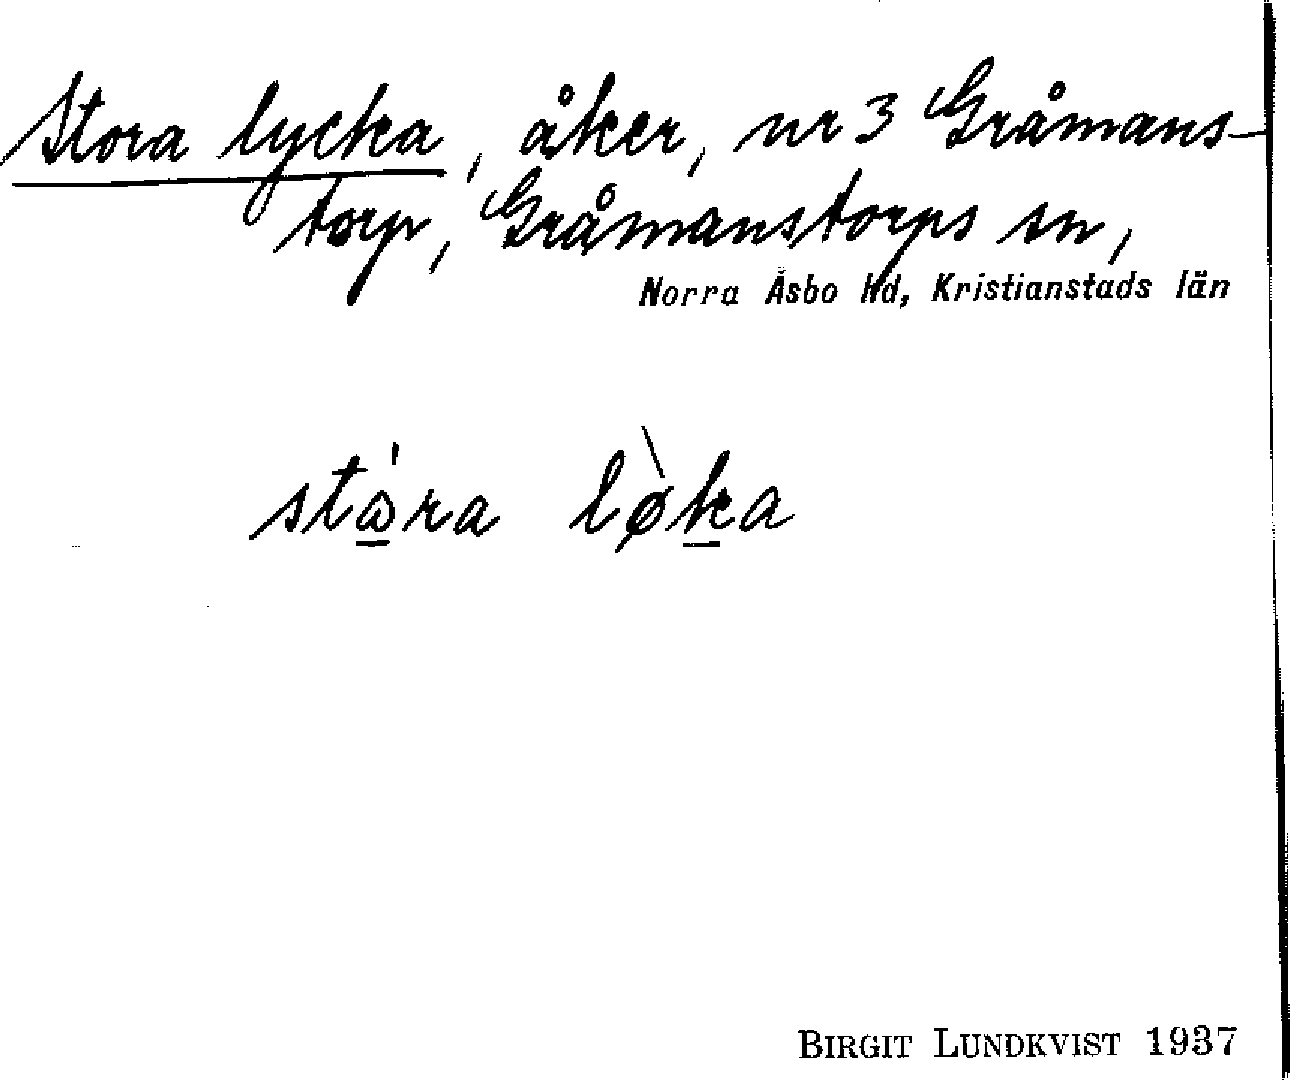 Stora lycka, åker, nr 3 Gråmans-
torp, Gråmanstorps sn,
Norra Åsbo hd, Kristianstads län
stώ̱ra lø̀ḵa
BIRGIT LUNDKVIST 1937